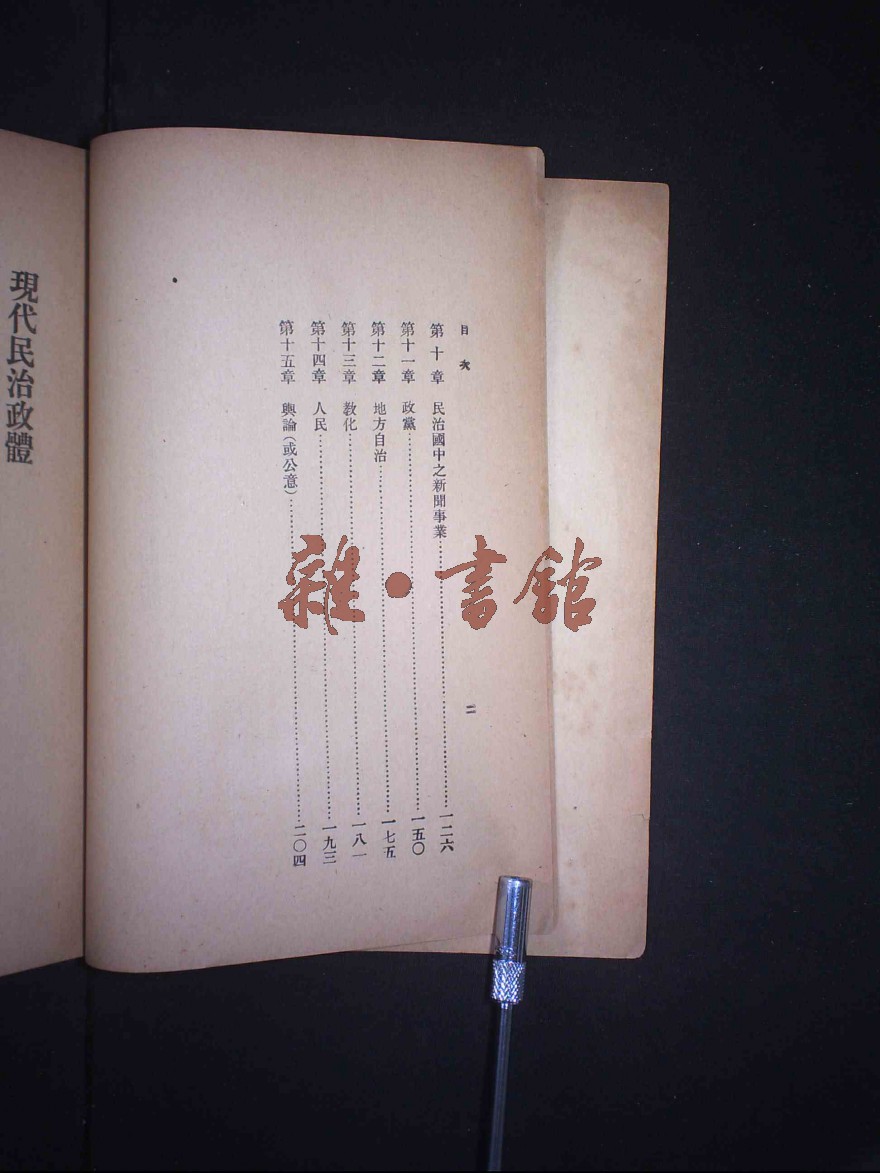 目次
第十章 民治國中之新聞事業………一二六
第十一章 政黨………一五〇
第十二章 地方自治………一七五
第十三章 教化………一八一
第十四章 人民………一九三
第十五章 輿論(或公意)………二〇四
二
現代民治政體
雜•書館